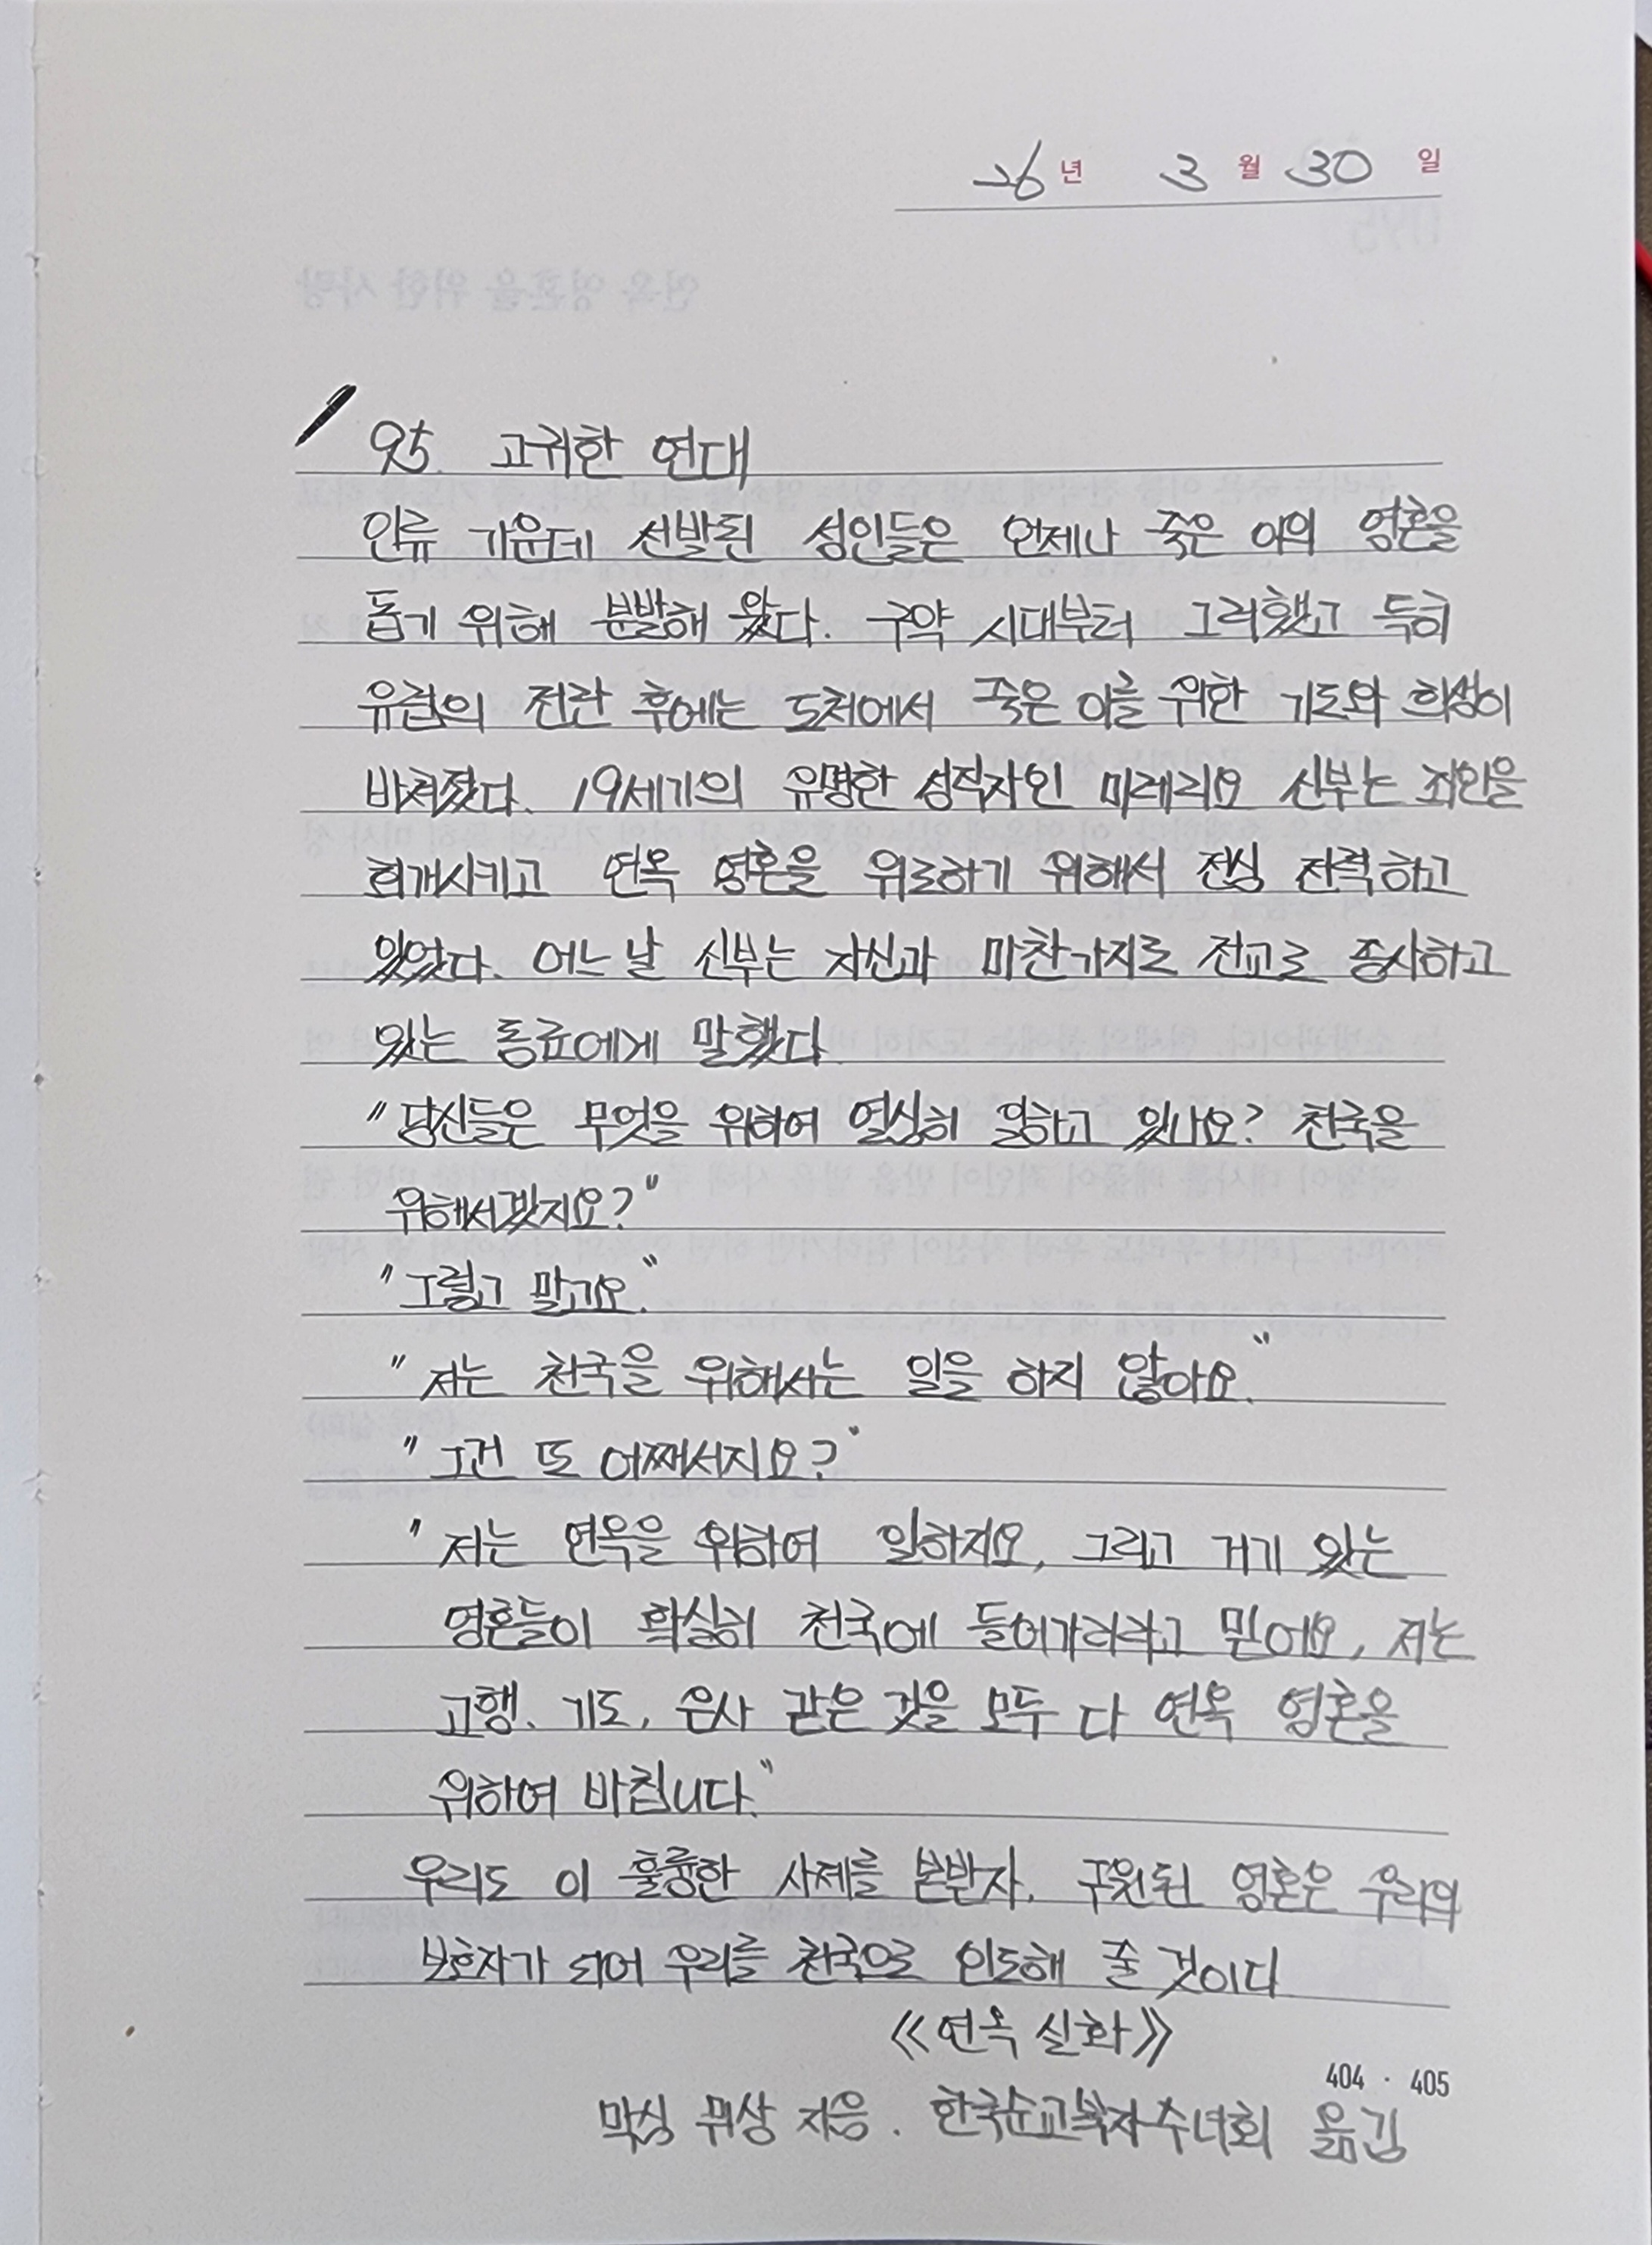 26년 3월 30일
95. 고귀한 연대
인류 가운데 선발된 성인들은 언제나 죽은 이의 영혼을
돕기 위해 분발해 왔다. 구약 시대부터 그러했고 특히
유럽의 전란 후에는 도처에서 죽은 이를 위한 기도와 희생이
바쳐졌다. 19세기의 유명한 성직자인 미레리오 신부는 죄인을
회개시키고 연옥 영혼을 위로하기 위해서 전심 전력하고
있었다. 어느 날 신부는 자신과 마찬가지로 전교로 종사하고
있는 동료에게 말했다
"당신들은 무엇을 위하여 열심히 일하고 있나요? 천국을
위해서겠지요?"
"그렇고 말고요."
"저는 천국을 위해서는 일을 하지 않아요."
"그건 또 어째서지요?"
"저는 연옥을 위하여 일하지요, 그리고 거기 있는
영혼들이 확실히 천국에 들어가리라고 믿어요, 저는
고행, 기도, 은사 같은 것을 모두 다 연옥 영혼을
위하여 바칩니다."
우리도 이 훌륭한 사제를 본받자. 구원된 영혼은 우리의
보호자가 되어 우리를 천국으로 인도해 줄 것이다
《연옥 실화》
404 · 405
막심 퓌상 지음. 한국순교복자수녀회 옮김